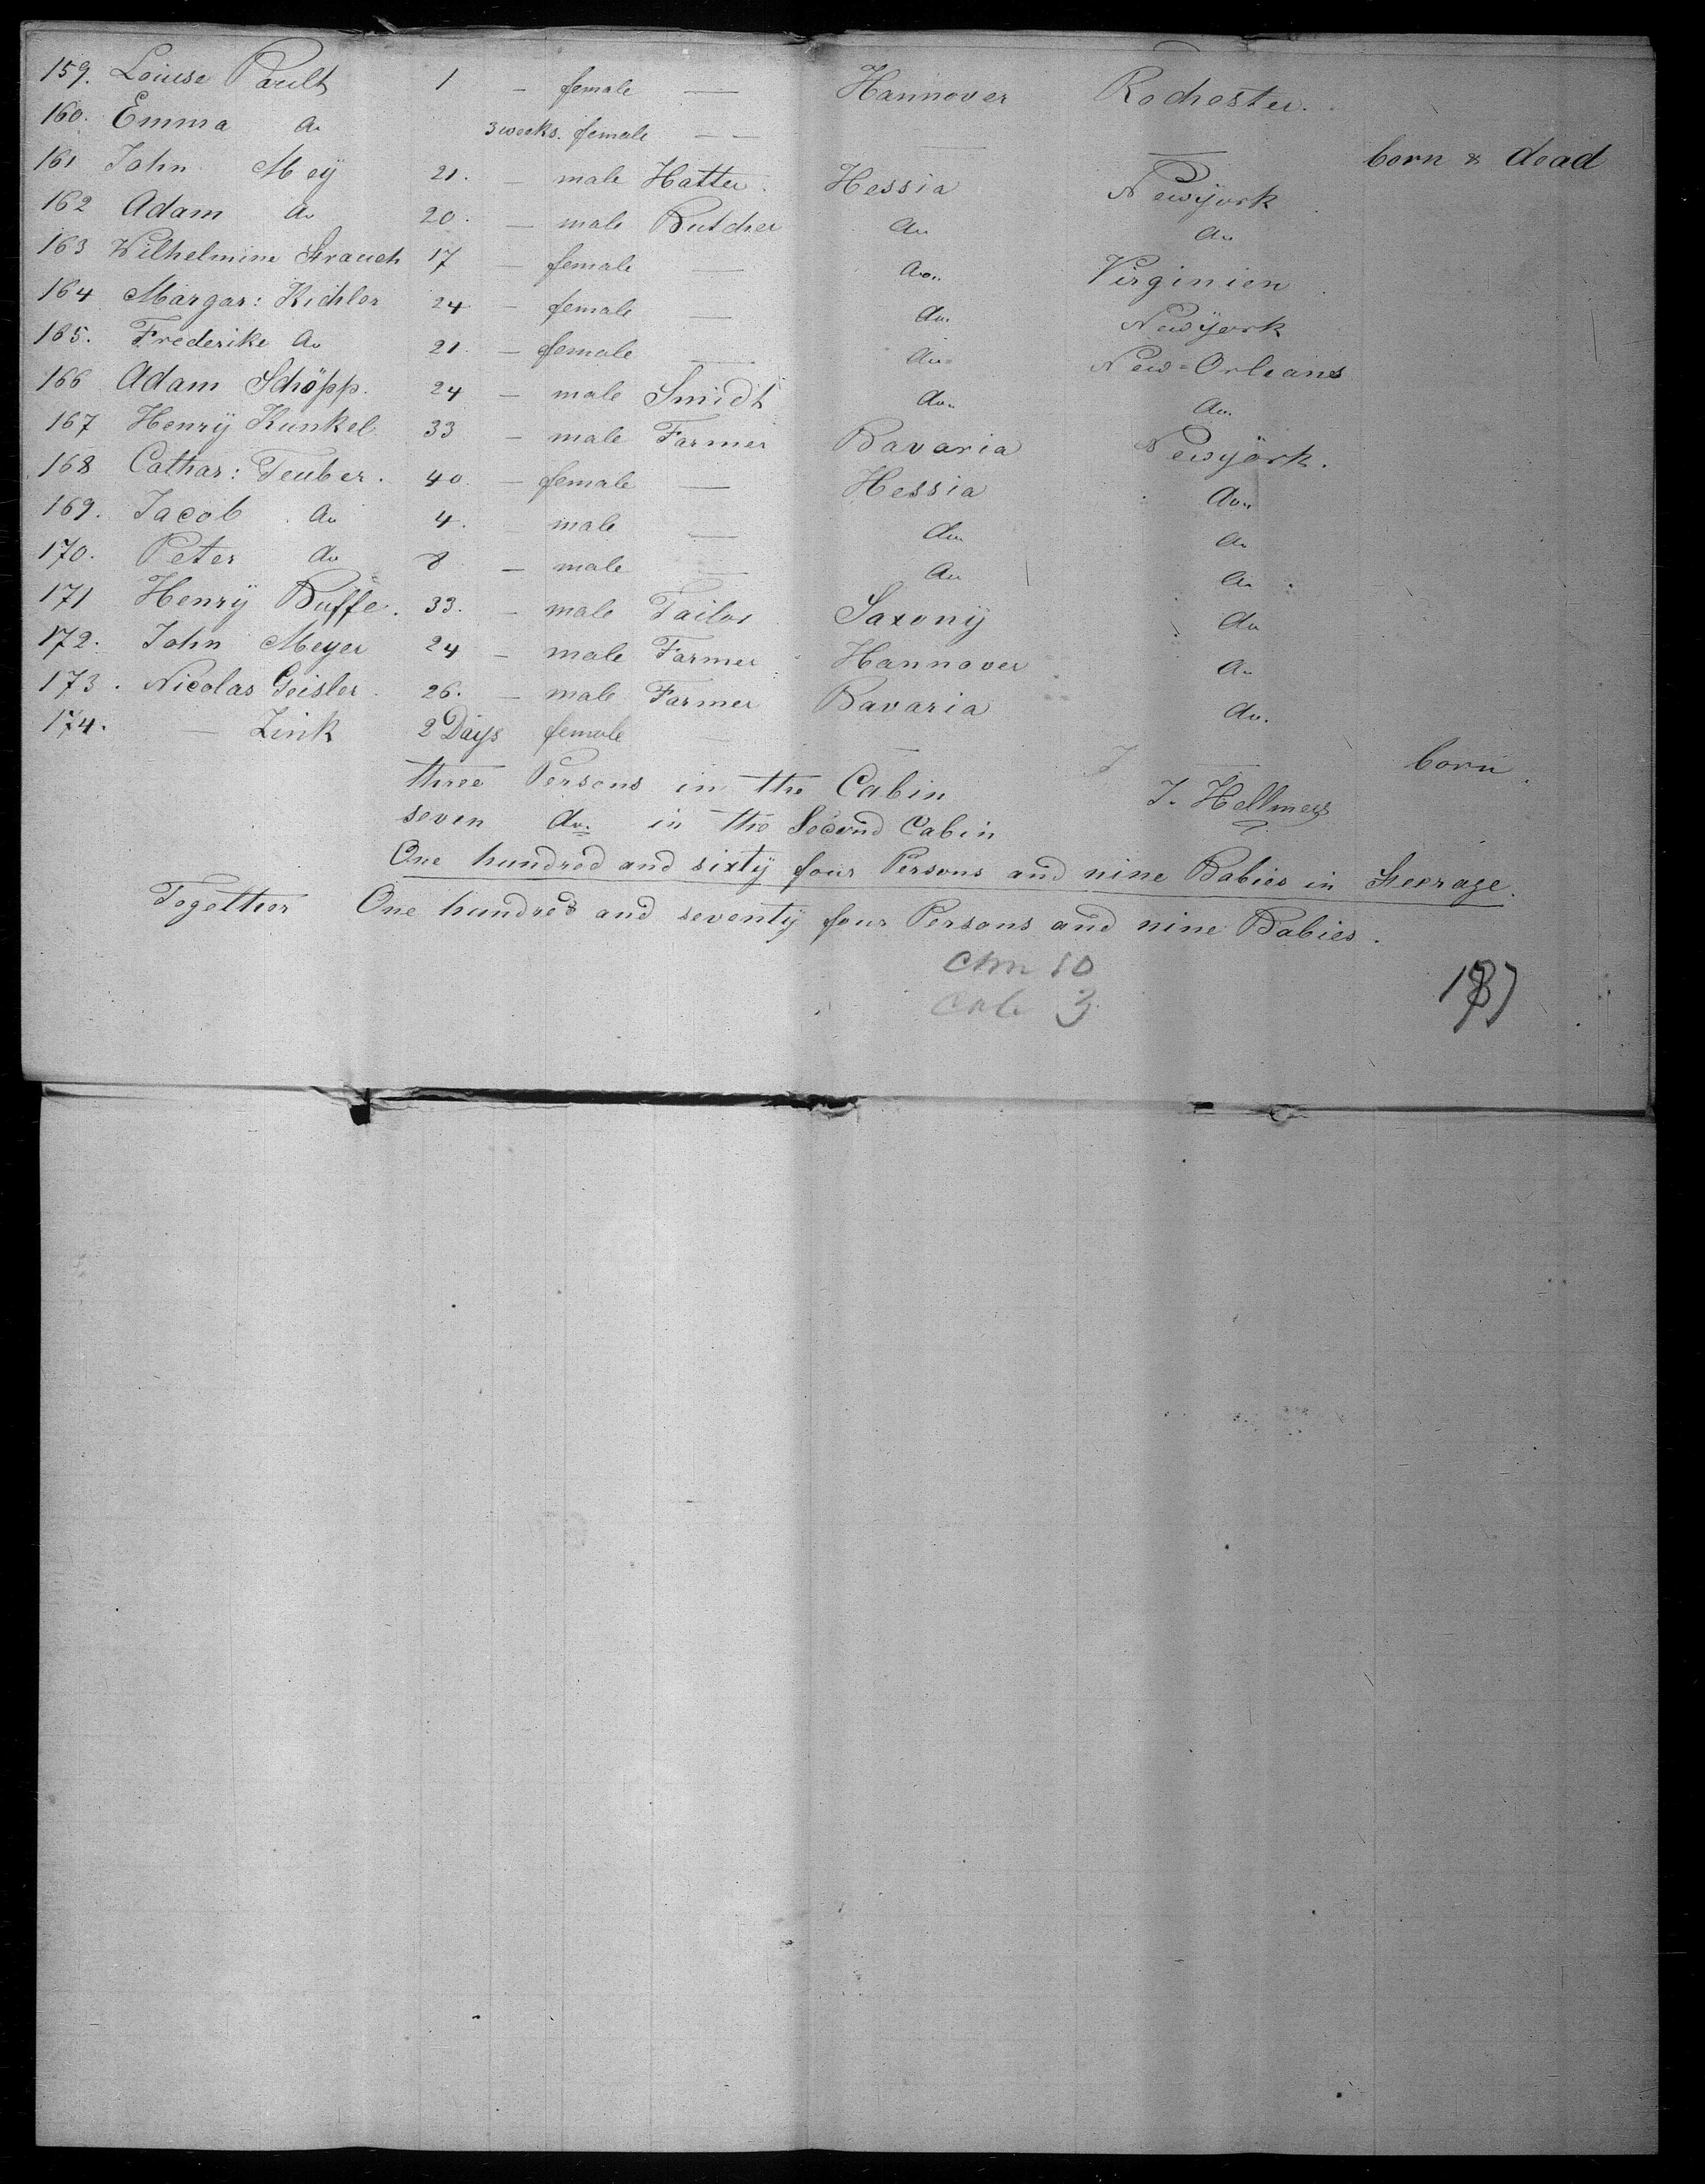 159. Louise Pault 1 – female — Hannover Rochester.
160. Emma do 3 weeks. female — — — — born & dead
161 John Mey 21. – male Hatter. Hessia Newÿork
162 Adam do 20. – male Butcher do do
163 Wilhelmine Strauch 17 – female — do Virginien
164 Margar: Kichler 24 – female — do Newÿork
165. Frederike do 21. – female — do New-Orleans
166 Adam Schöpp. 24 – male Smidt do do
167 Henrÿ Kunkel 33 – male Farmer Bavaria Newÿork.
168 Cathar: Teuber. 40. – female — Hessia do
169. Jacob do 4. male — do do
170. Peter do 8 – male — do do
171 Henrÿ Buffe. 33. – male Tailor Saxonÿ do
172. John Meyer 24 – male Farmer Hannover do
173. Nicolas Geisler. 26. – male Farmer Bavaria do.
174. — Zink 2 Days female — — born.
three Persons in the Cabin
J. Hellmers
seven do. in the Second Cabin
One hundred and sixtÿ four Persons and nine Babies in Steerage.
Together One hundred and seventÿ four Persons and nine Babies.
10
3